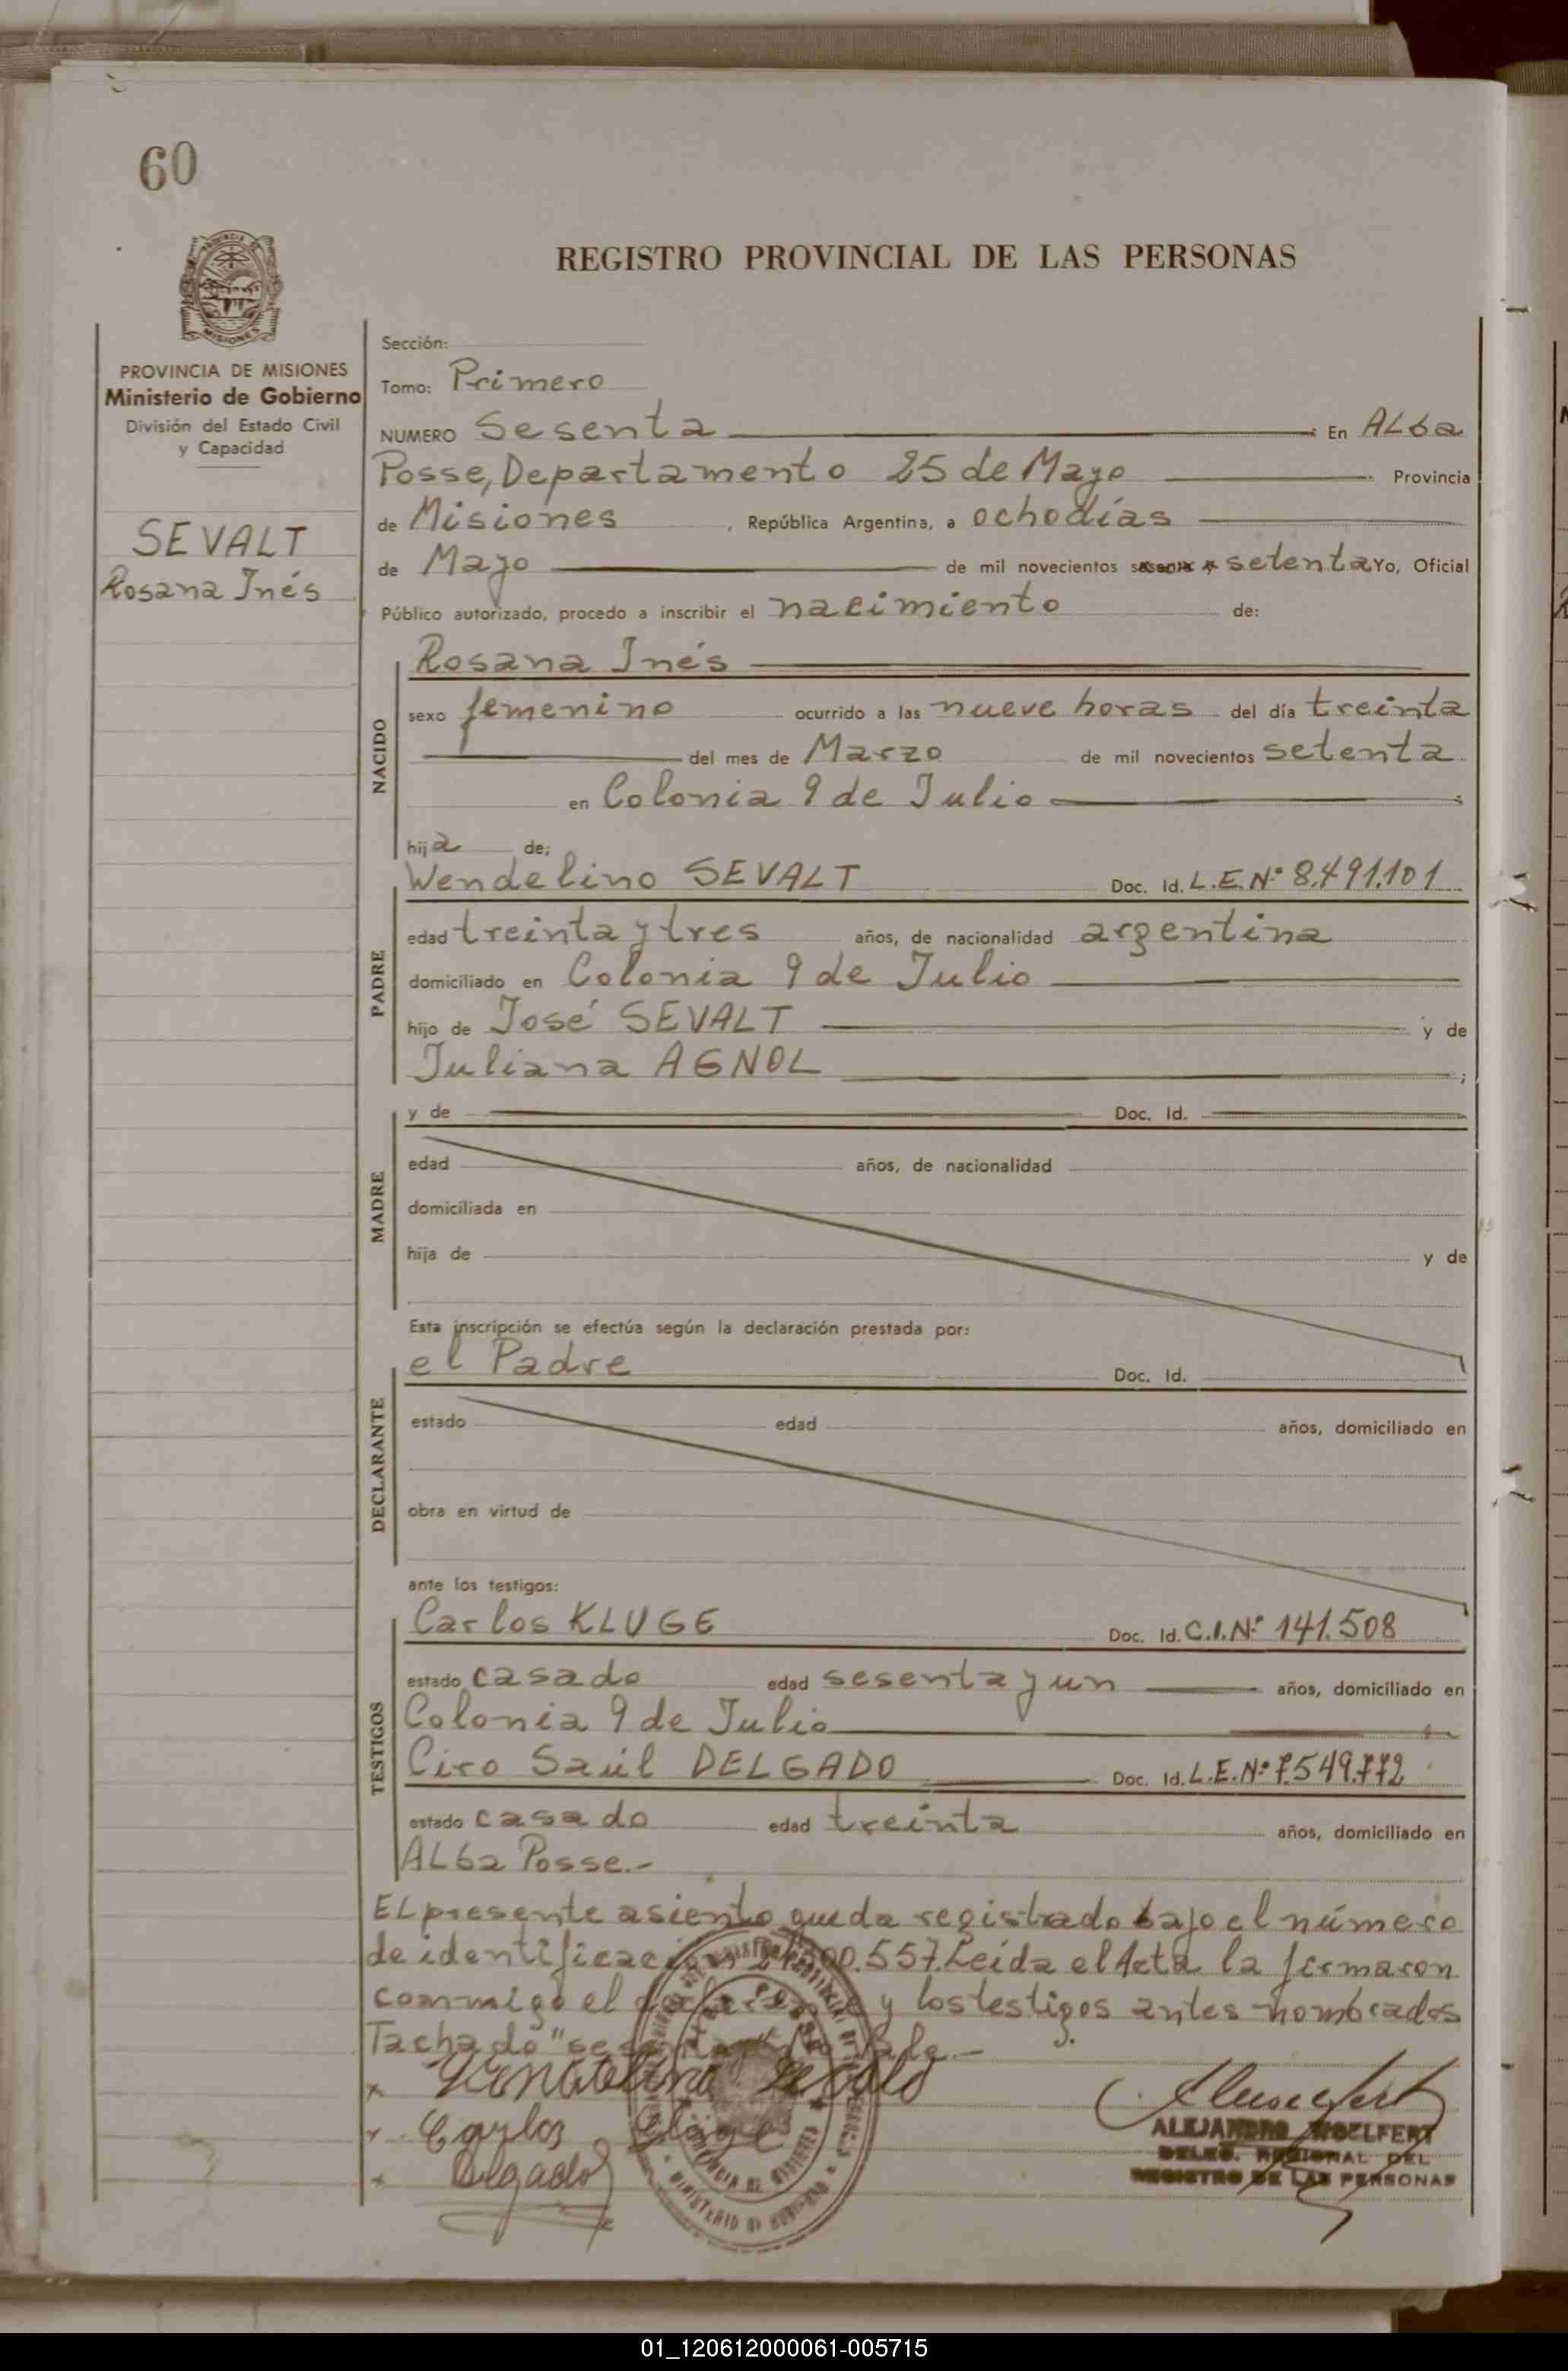 60
REGISTRO PROVINCIAL DE LAS PERSONAS
PROVINCIA DE MISIONES
Ministerio de Gobierno
División del Estado Civil
y Capacidad
SEVALT
Rosana Inés
Sección:
Tomo: Primero
NUMERO Sesenta En ALba
Posse, Departamento 25 de Mayo Provincia
de Misiones , República Argentina, a ocho días
de Mayo de mil novecientos sesenta y setenta Yo, Oficial
Público autorizado, procedo a inscribir el nacimiento de:
NACIDO
Rosana Inés
sexo femenino ocurrido a las nueve horas del día treinta
del mes de Marzo de mil novecientos setenta
en Colonia 9 de Julio
hija de:
PADRE
Wendelino SEVALT Doc. Id. L.E.Nº 8.491.101
edad treinta y tres años, de nacionalidad argentina
domiciliado en Colonia 9 de Julio
hijo de José SEVALT y de
Juliana AGNOL ;
MADRE
y de Doc. Id.
edad años, de nacionalidad
domiciliada en
hija de y de
Esta inscripción se efectúa según la declaración prestada por:
DECLARANTE
el Padre Doc. Id.
estado edad años, domiciliado en
obra en virtud de
ante los testigos:
TESTIGOS
Carlos KLUGE Doc. Id. C.I.Nº 141.508
estado casado edad sesenta y un años, domiciliado en
Colonia 9 de Julio
Ciro Saúl DELGADO Doc. Id. L.E.Nº 7.549.772
estado casado edad treinta años, domiciliado en
ALba Posse.-
EL presente asiento queda registrado bajo el número
de identificación .557. Leída el Acta la firmaron
conmigo el declarante y los testigos antes nombrados.
Tachado "sesenta" Vale.-
Carlos Kluge
Delgado
ALEJANDRO WOELFERT
DELEG. REGIONAL DEL
REGISTRO DE LAS PERSONAS
01_120612000061-005715